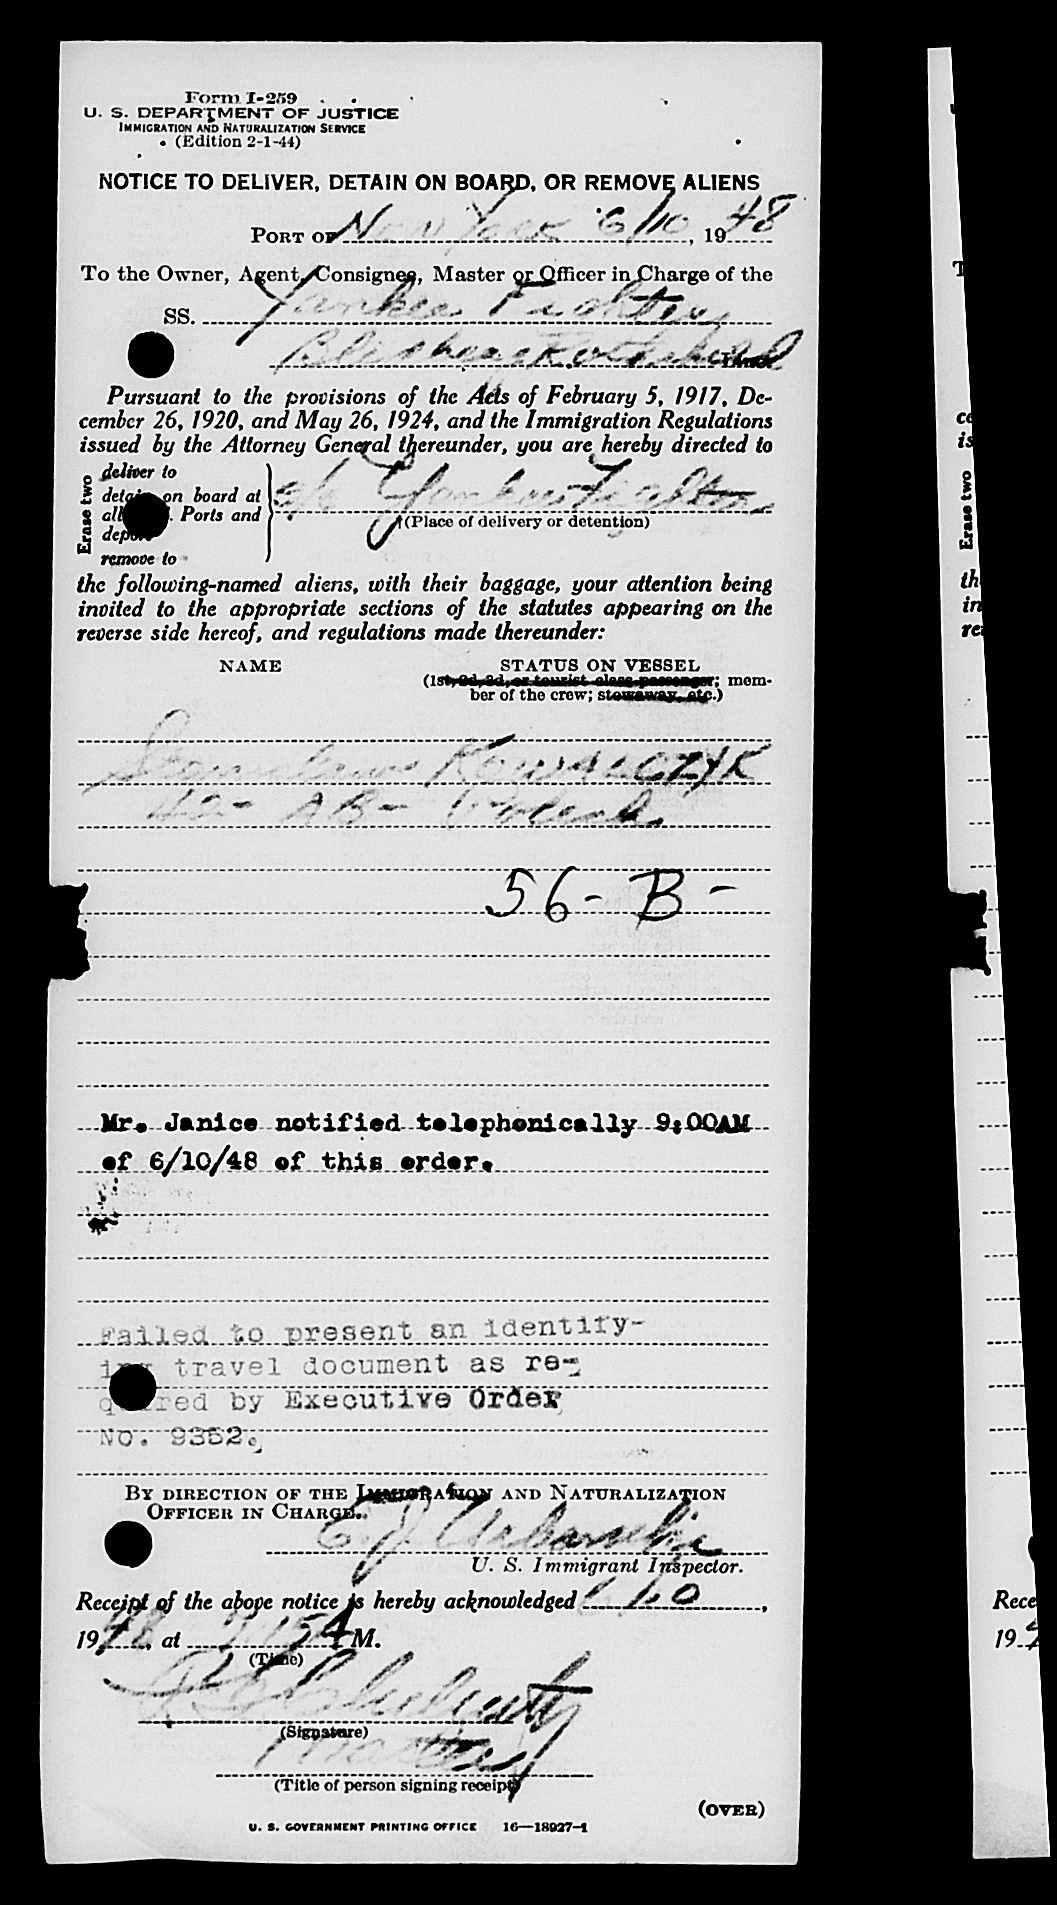 Form I-259
U. S. DEPARTMENT OF JUSTICE
IMMIGRATION AND NATURALIZATION SERVICE
(Edition 2-1-44)
NOTICE TO DELIVER, DETAIN ON BOARD, OR REMOVE ALIENS
PORT OF New York 6/10, 1948
To the Owner, Agent, Consignee, Master or Officer in Charge of the
SS. Yankee Fighter
Pursuant to the provisions of the Acts of February 5, 1917, De-
cember 26, 1920, and May 26, 1924, and the Immigration Regulations
issued by the Attorney General thereunder, you are hereby directed to
Erase two
deliver to
detain on board at
all Ports and
depart
remove to
Yankee Fighter
(Place of delivery or detention)
the following-named aliens, with their baggage, your attention being
invited to the appropriate sections of the statutes appearing on the
reverse side hereof, and regulations made thereunder:
NAME STATUS ON VESSEL
(1st, 2d, 3d, or tourist class passenger; mem-
ber of the crew; stowaway, etc.)
Stanislaw KOWALCZYK
42 - AB - Polish
56 - B -
Mr. Janice notified telephonically 9:00AM
of 6/10/48 of this order.
Failed to present an identify-
ing travel document as re-
quired by Executive Order
No. 9352.
BY DIRECTION OF THE IMMIGRATION AND NATURALIZATION
OFFICER IN CHARGE.
E. J. Urbanski
U. S. Immigrant Inspector.
Receipt of the above notice is hereby acknowledged 6/10,
1948, at M.
(Time)
(Signature)
Master
(Title of person signing receipt)
(OVER)
U. S. GOVERNMENT PRINTING OFFICE 16—18927-1
Erase two
Rece
19